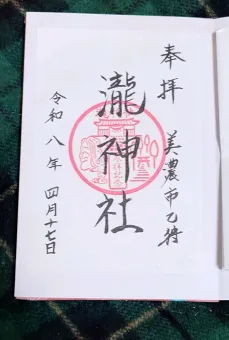 奉拝
美濃市乙狩
瀧神社
令和八年 四月十七日